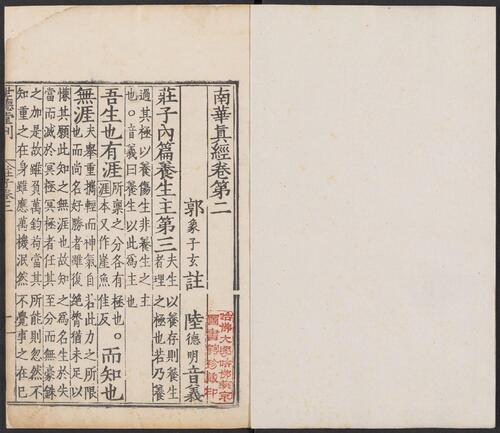 南華真經卷第二
郭象子玄註 陸德明音義
莊子內篇養生主第三夫生以養存則養生者理之極也若乃養
過其極以養傷生非養生之主也○音義曰養生以此爲主也
吾生也有涯所稟之分各有極也○涯本又作崖魚佳反而知也
無涯夫舉重攜輕而神氣自若此力之所限也而尚名好勝者雖復絕膂猶未足以
慊其願此知之無涯也故知之爲名生於失當而滅於冥極冥極者任其至分而無毫銖
之加是故雖負萬鈞苟當其所能則忽然不知重之在身雖應萬機泯然不覺事之在己
世德堂刊
莊子卷二
一
哈佛大學哈佛燕京
圖書館珍藏印